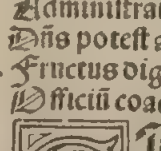 Adminiſtra
Dñs poteſt a
Fructus dig
Officiū coa